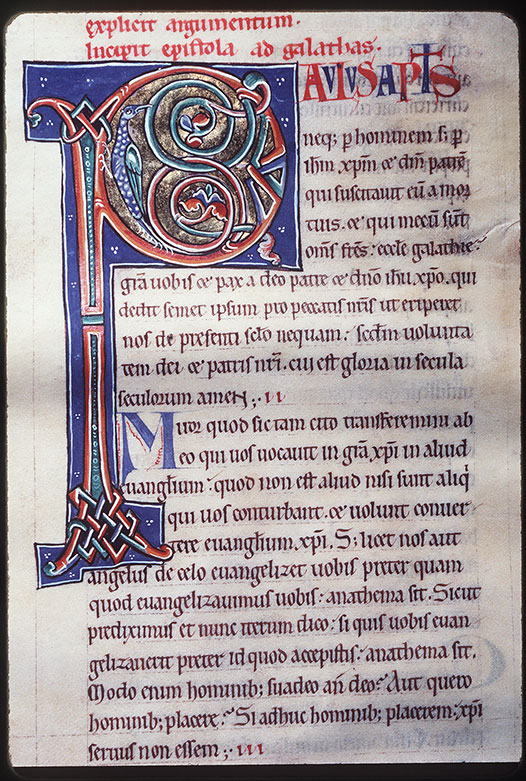 explicit argumentum.
Incipit epistola ad galathas.
PAULUS APLS
neq; p hominem s; p
ihm xpm et dm patrē
qui suscitauit eū a mor
tuis. et qui mecū sūt
om̄s frēs: eccle galathie.
grā uobis et pax a deo patre et dn̄o ihu. xpo. qui
dedit semet ipsum pro peccatis nr̄is ut eriperet
nos de presenti sclo nequam: secdm uolunta
tem dei et patris nr̄i. cui est gloria in secula
seculorum amen;. II
Miror quod sic tam cito transferemini ab
eo qui uos uocauit in grā. xpi in aliud
euangłium: quod non est aliud nisi sunt aliq̇
qui uos conturbant. et uolunt conuer
tere euangłium. xpi. S; licet nos aut
angelus de celo euangelizet uobis preter quam
quod euangelizauimus uobis. anathema sit. Sicut
prediximus et nunc iterum dico: si quis uobis euan
gelizauerit preter id quod accepistis. anathema sit.
Modo enim hominib; suadeo an̄ deo? Aut quero
hominib; placere? Si adhuc hominib; placerem: xpi
seruus non essem;. III